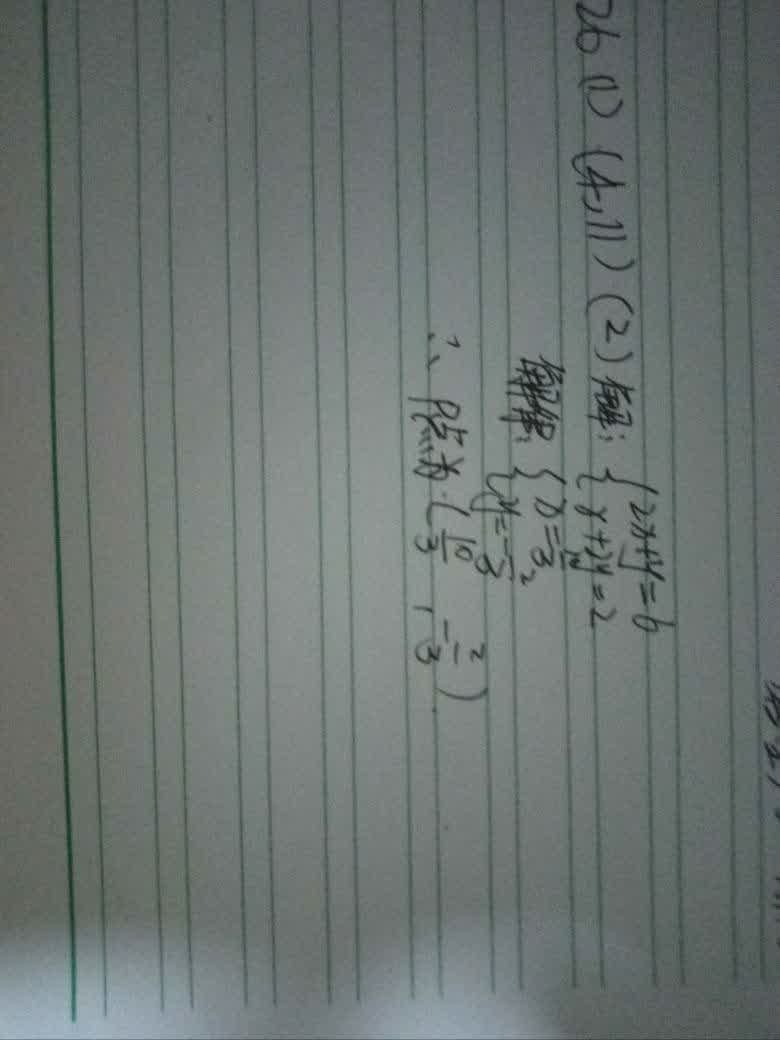 26 (1) (4,11) (2) 解: { 2x+y=6
{ x+2y=2
解得: { x=10/3
{ y=-2/3
∴ P点为 (10/3, -2/3)